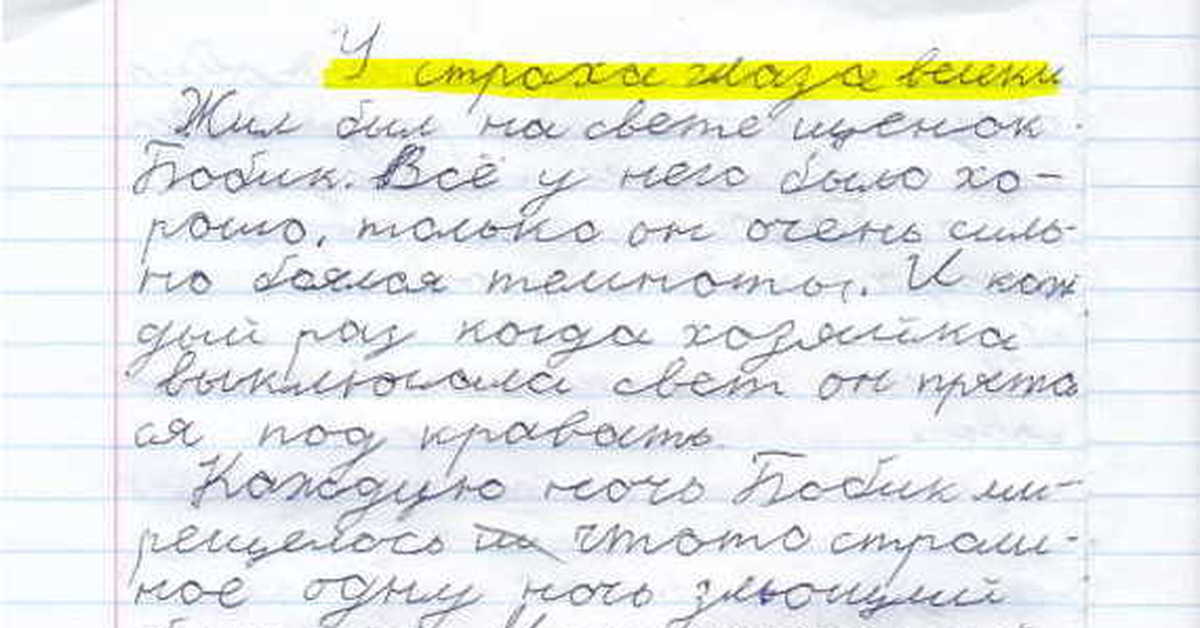 У страха глаза велики
Жил бил на свете щенок
Бобик. Всё у него было хо-
рошо, только он очень силь-
но боялся темноты. И каж
дый раз когда хозяйка
выключала свет он прята
ся под кравать
Каждую ночь Бобик ми-
рещелось чтото страш-
ное одну ночь